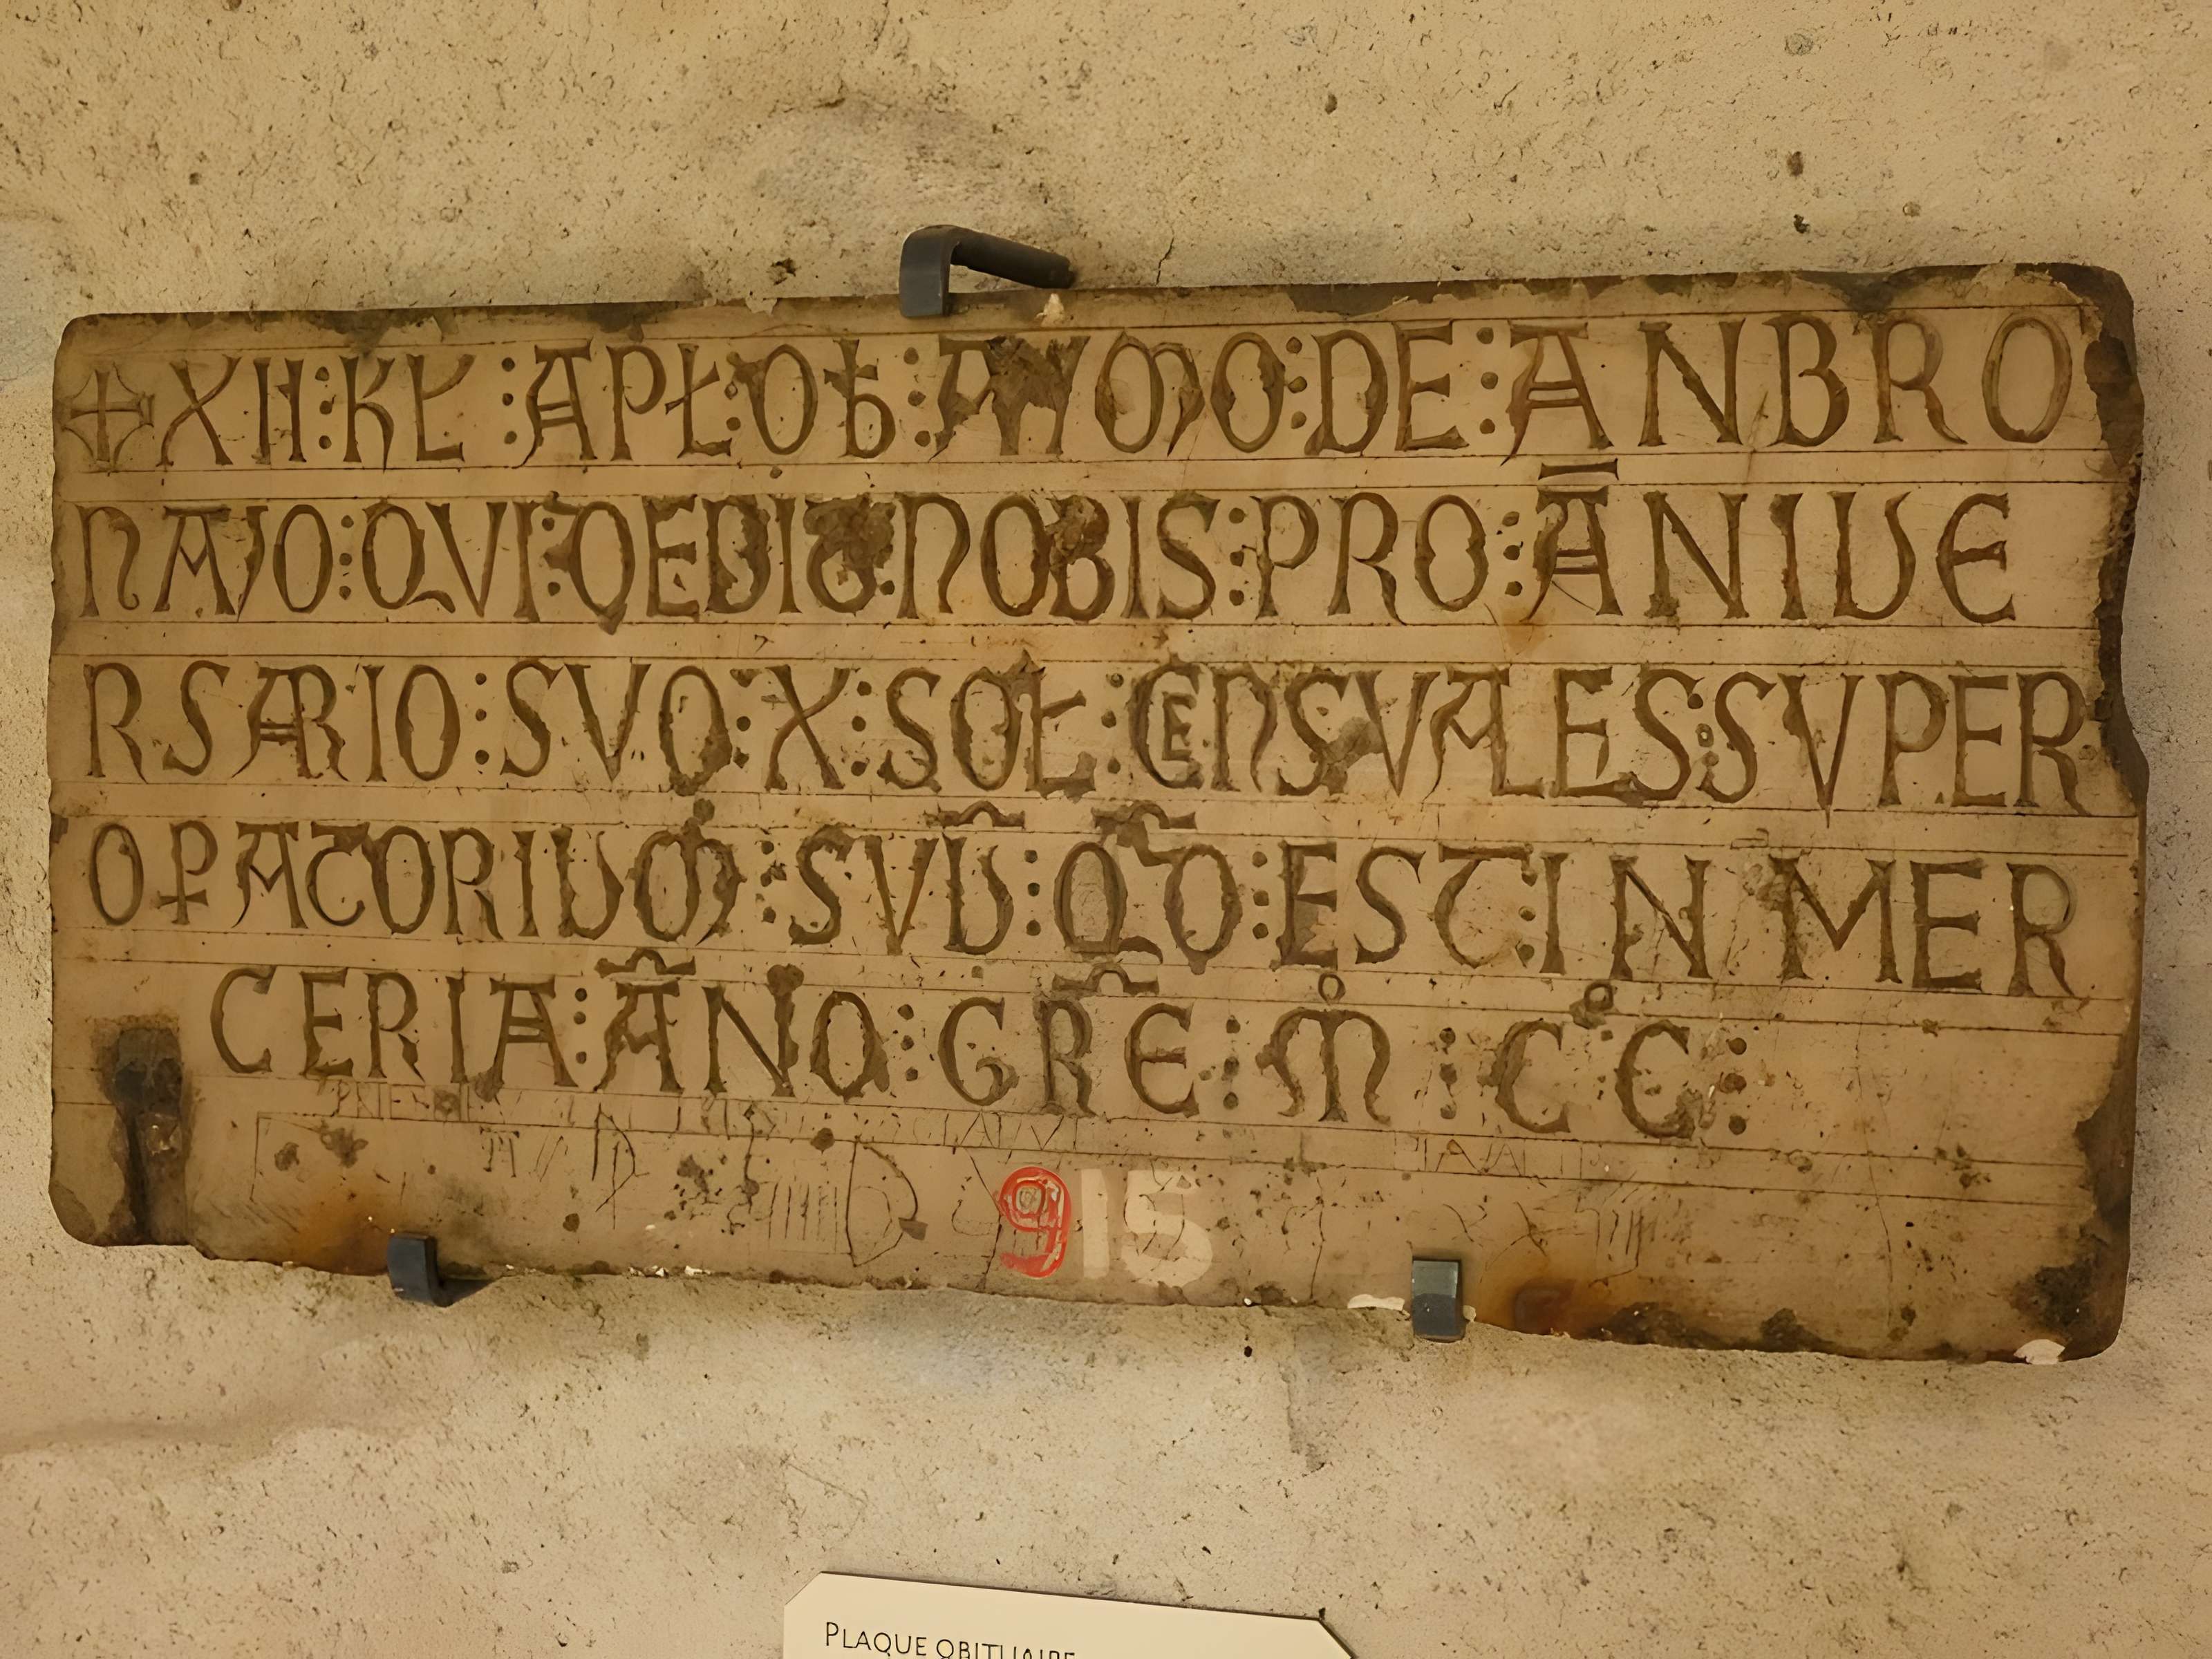 ✠ XII : KL : APL : OB : AYMO : DE : ANBRO
NAIO : QVI : DEDIT : NOBIS : PRO : ĀNIVE
RSARIO : SVO : X : SOL : CENSVALES : SVPER
OPATORIVM : SVŪ : QD : EST : IN MER
CERIA : ĀNO : GRĒ : M̊ : C̊ C :
915
PLAQUE OBITUAIRE